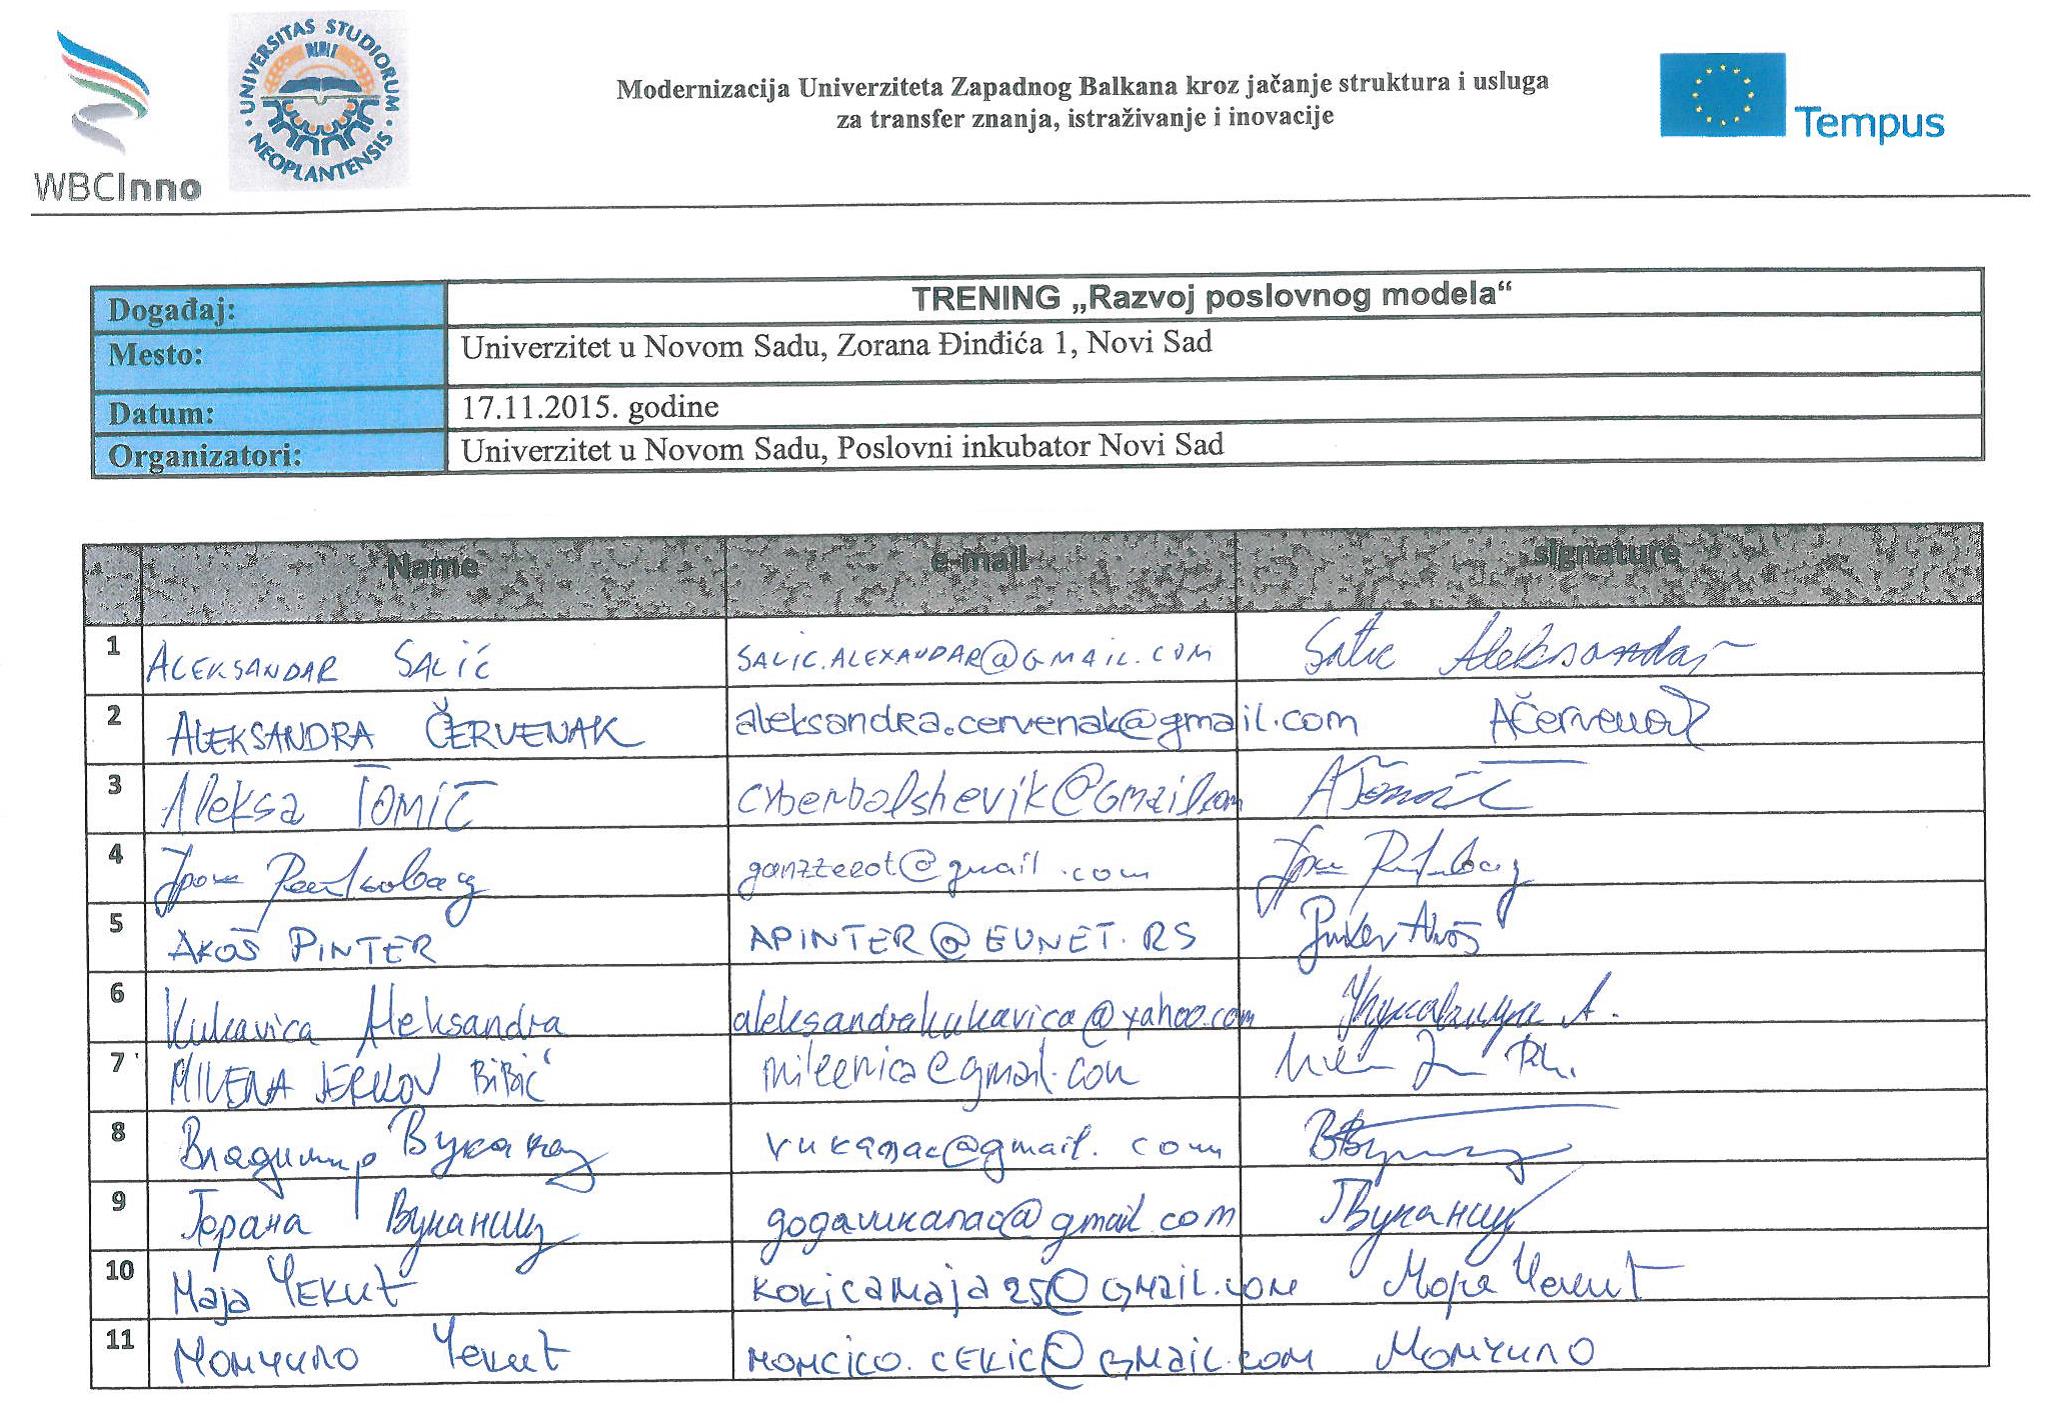 UNIVERSITAS STUDIORUM
NEOPLANTENSIS
WBCInno
Modernizacija Univerziteta Zapadnog Balkana kroz jačanje struktura i usluga
za transfer znanja, istraživanje i inovacije
Tempus
Događaj: TRENING „Razvoj poslovnog modela“
Mesto: Univerzitet u Novom Sadu, Zorana Đinđića 1, Novi Sad
Datum: 17.11.2015. godine
Organizatori: Univerzitet u Novom Sadu, Poslovni inkubator Novi Sad
Name e-mail signature
1 ALEKSANDAR SALIĆ SALIC.ALEXANDAR@GMAIL.COM Salic Aleksandar
2 ALEKSANDRA ČERVENAK aleksandra.cervenak@gmail.com AČervenak
3 Aleksa Tomić cyberbolshevik@Gmail.com ATomić
4 @gmail.com
5 AKOŠ PINTER APINTER@EUNET.RS Pinter Akoš
6 Kukavica Aleksandra aleksandrakukavica@yahoo.com
7 MILENA JERKOV BIBIĆ mileenica@gmail.com
8 Владимир Вуканац vukanac@gmail.com
9 Горана Вуканац gogavukanac@gmail.com ГВуканац
10 Маја Чекић kokicamaja25@GMail.com Маја Чекић
11 Момчило Чекић MOMCILO.CEKIC@GMail.com Момчило